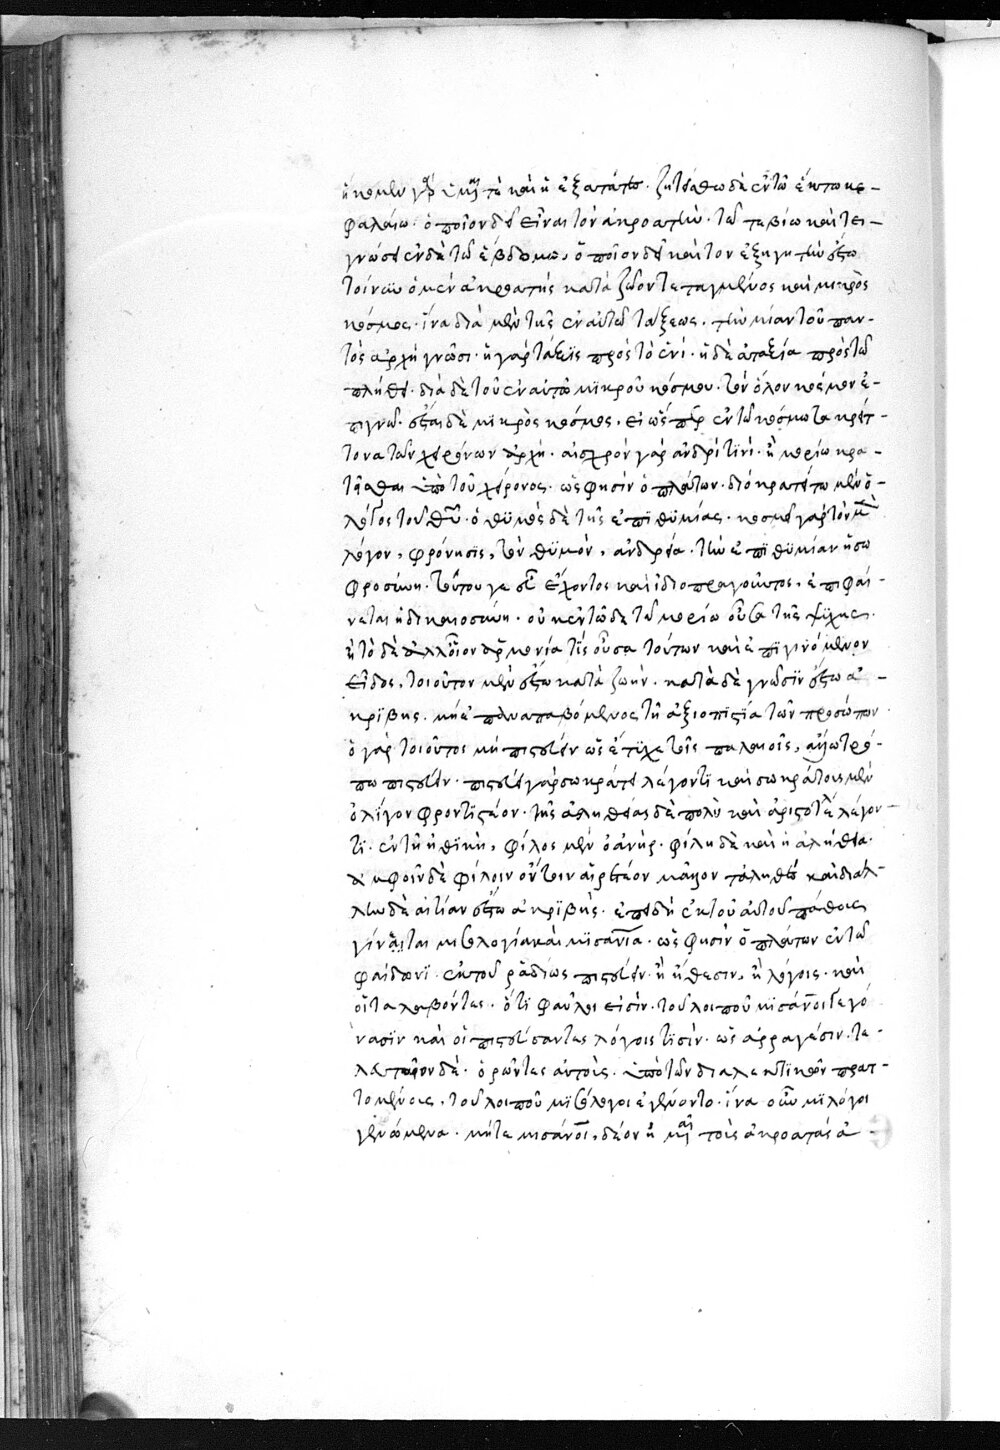 ἥκομεν γὰρ ἐπὶ τὰ καὶ ἡ ἐξαπάτη. ζητείσθω δὲ ἐν τῶ ἕκτω κε-
φαλαίω. ὁποῖον δεῖ εἶναι τὸν ἀκροατὴν. τῶ τε βίω καὶ τεῖ
γνώσει ἐν δὲ τῶ ἑβδόμω, ὁποῖον δεῖ καὶ τὸν ἐξηγητὴν ἔστω
τοίνυν ὁ μὲν ἀκροατὴς κατὰ ζωὴν τεταγμένος καὶ μικρὸς
κόσμος. ἵνα διὰ μὲν τῆς ἐν αὐτῶ τάξεως. τὴν μίαν τοῦ παν-
τὸς ἀρχὴ γνῶσι. ἡ γὰρ τάξις πρὸς τὸ ἑνί. ἡ δὲ ἀταξία πρὸς τῶ
πλήθει. διὰ δὲ τοῦ ἐν αὐτῶ μικροῦ κόσμου. τὸν ὅλον κόσμον ἐ-
πιγνῶ. ἔσται δὲ μικρὸς κόσμος, εἰ ὥσπερ ἐν τῶ κόσμω τὰ κρείτ-
τονα τῶν χειρόνων ἄρχη. αἰσχρὸν γὰρ ἀνδρί τινι. ἢ μορίω κρα-
τῆσθαι ὑπὸ τοῦ χείρονος. ὥς φησὶν ὁ πλάτων. διὸ κρατείτω μὲν ὁ
λόγος τοῦ θυμοῦ. ὁ θυμὸς δὲ τῆς ἐπιθυμίας. κοσμεῖ γὰρ τὸν μὲν
λόγον, φρόνησις, τὸν θυμὸν, ἀνδρεία. τὴν ἐπιθυμίαν ἡ σω
φροσύνη. τούτου γε οὖν ἔχοντος καὶ ἰδιοπραγοῦντος, ἐπιφαί-
νεται ἡ δικαιοσύνη. οὐκ ἐν τῶδε τῶ μορίω οὖσα τῆς ψυχῆς.
ἢ τὸ δὲ ἀλλ' οἷον ἁρμονία τίς οὖσα τούτων καὶ ἐπιγινόμενον
εἶδος, τοιοῦτον μὲν ἔστω κατὰ ζωήν. κατὰ δὲ γνῶσιν ἔστω ἀ-
κριβὴς. μὴ ἐπαναπαβόμενος τῆ ἀξιοπιστία τῶν προσώπων
ὁ γὰρ τοιοῦτος μὴ πιστεύειν ὡς ἔτυχε τοῖς παλαιοῖς, ἀλλω τρό-
πω πιστεύειν. πιστεύει γὰρ σωκράτει λέγοντι καὶ σωκράτους μὲν
ὀλίγον φροντιστέον. τῆς ἀληθείας δὲ πολὺ καὶ ἀριστοτέλει λέγον-
τι. ἐν τῆ ἠθικὴ, φίλος μὲν ὁ ἀνὴρ. φίλη δὲ καὶ ἡ ἀλήθεια.
ἀμφοῖν δὲ φίλοιν ὄντοιν αἱρετέον μᾶλλον τἀληθὲς καὶ δι' ἀλ-
λην δὲ αἰτίαν ἔστω ἀκριβὴς. ἐπειδὴ ἐκ τοῦ αὐτοῦ πάθους
γίνεται μισολογία καὶ μισανία. ὥς φησὶν ὁ πλάτων ἐν τῶ
φαίδωνι. ἐκ τοῦ ῥαδίως πιστεύειν. ἢ ἤθεσιν, ἢ λόγοις. καὶ
εἶτα λαβόντες. ὅτι φαῦλοι εἰσὶν. τοῦ λοιποῦ μισάνοι γεγό
νασϊν καὶ οἱ πιστεύσαντες λόγοις τισὶν. ὡς ἀρραγέσιν. τε-
λευταῖον δὲ. ὁρῶντες αὐτοὺς. ὑπὸ τῶν διαλεκτικῶν πρατ-
τομένους, τοῦ λοιποῦ μισόλογοι ἐγένοντο. ἵνα οὖν μὴ λόγοι
γενώμενα. μήτε μισάνοι, δέον ἢ μὴ τοὺς ἀκροατὰς ἀ-